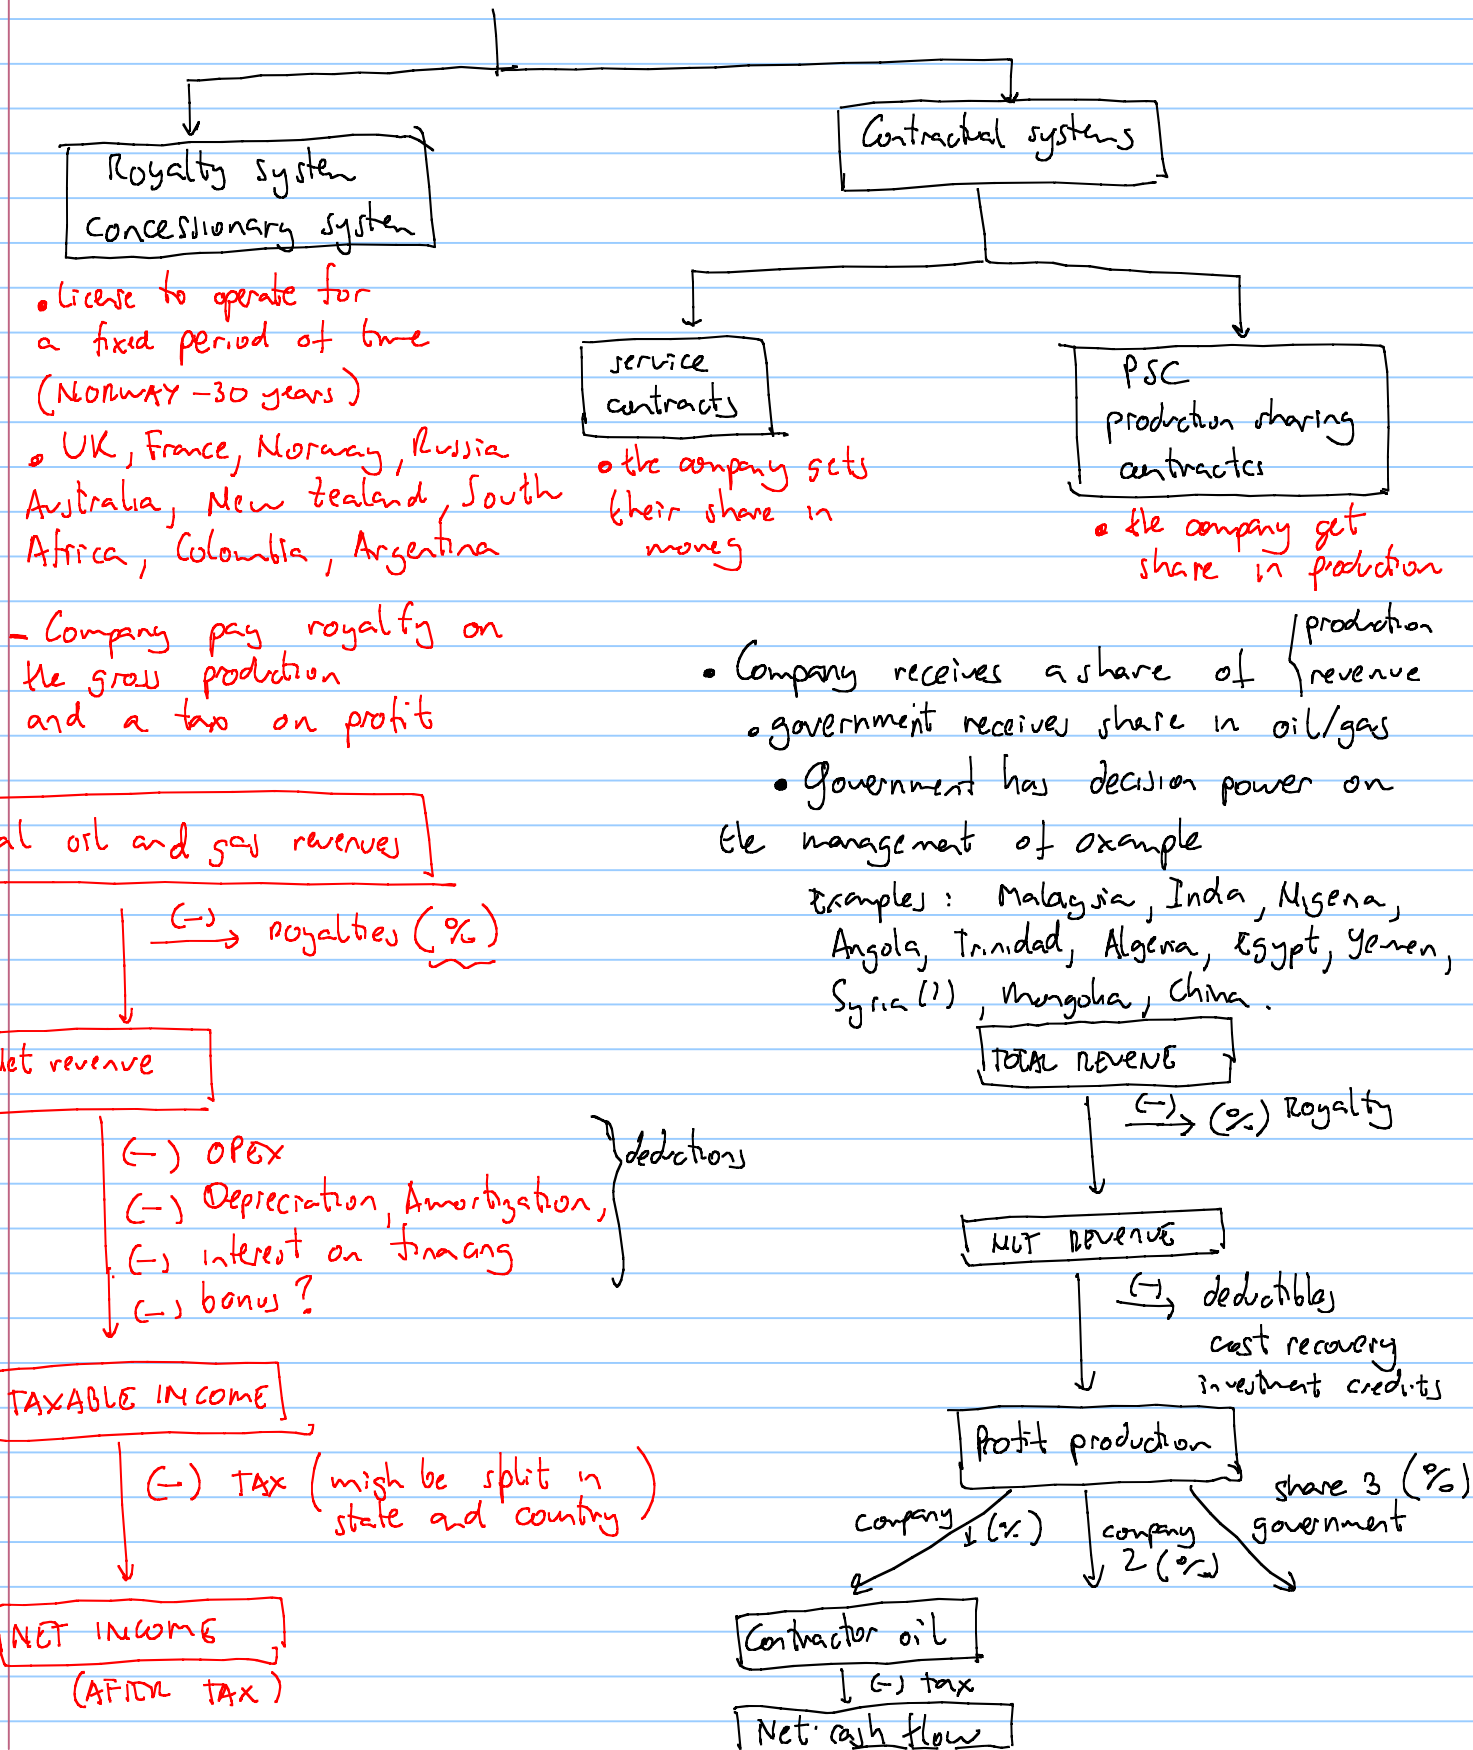 Royalty system
concessionary system
• License to operate for
a fixed period of time
(NORWAY - 30 years)
• UK, France, Norway, Russia
Australia, New Zealand, South
Africa, Colombia, Argentina
- Company pay royalty on
the gross production
and a tax on profit
al oil and gas revenues
(-) Royalties (%)
Net revenue
(-) OPEX
(-) Depreciation, Amortization,
(-) interest on financing
(-) bonus?
deductions
TAXABLE INCOME
(-) TAX (migh be split in
state and country)
NET INCOME
(AFTER TAX)
Contractual systems
service
contracts
• the company gets
their share in
money
PSC
production sharing
contractcs
• the company get
share in production
• Company receives a share of { production
revenue
• government receives share in oil/gas
• Government has decision power on
the management of example
Examples: Malaysia, India, Nigeria,
Angola, Trinidad, Algeria, Egypt, Yemen,
Syria (?), Mongolia, China.
TOTAL REVENE
(-) (%) Royalty
NET REVENUE
(-) deductibles
cost recovery
investment credits
Profit production
company
1 (%)
company
2 (%)
share 3 (%)
government
Contractor oil
(-) tax
Net cash flow